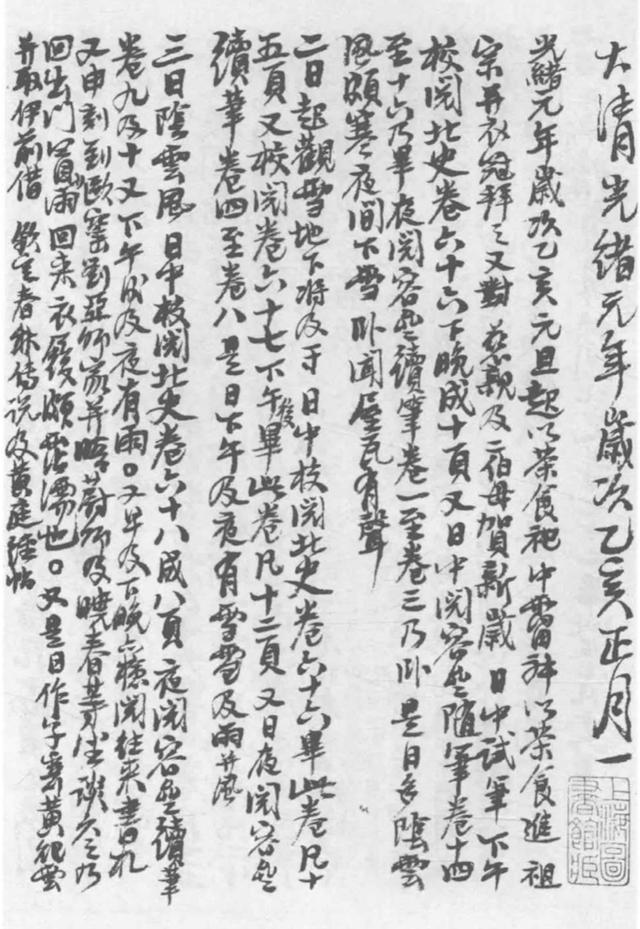 大清光緒元年歲次乙亥正月一
光緒元年歲次乙亥元旦起以茶食祀中霤神以茶食進 祖
宗并衣冠拜之又對 慈親及二伯母賀新歲 日中試筆下午
校閱北史卷六十六下晚成十頁又日中閱容齋隨筆卷十四
至十六乃畢夜閱容齋續筆卷一至卷三乃卧 是日多陰雲
風頗寒夜間下雪卧聞屋瓦有聲
二日起觀雪地下將及寸 日中校閱北史卷六十六畢此卷凡十
五頁又校閱卷六十七下午後畢此卷凡十二頁 又日夜閱容齋
續筆卷四至卷八 是日下午及夜有雪雪及雨并風
三日陰雲風 日中校閱北史卷六十八成八頁 夜閱容齋續筆
卷九及十又下午後及夜有雨。又早及下晚亦檢閱往來書札
又申刻到歐窰劉亞師家并晤蔚師及曉春等坐談久之乃
回出門冒雨回來衣履頗霑濡也。又是日作字寄黃祀雲
并取伊前借 欽定春秋傳說及黃庭經帖
上海圖書館藏